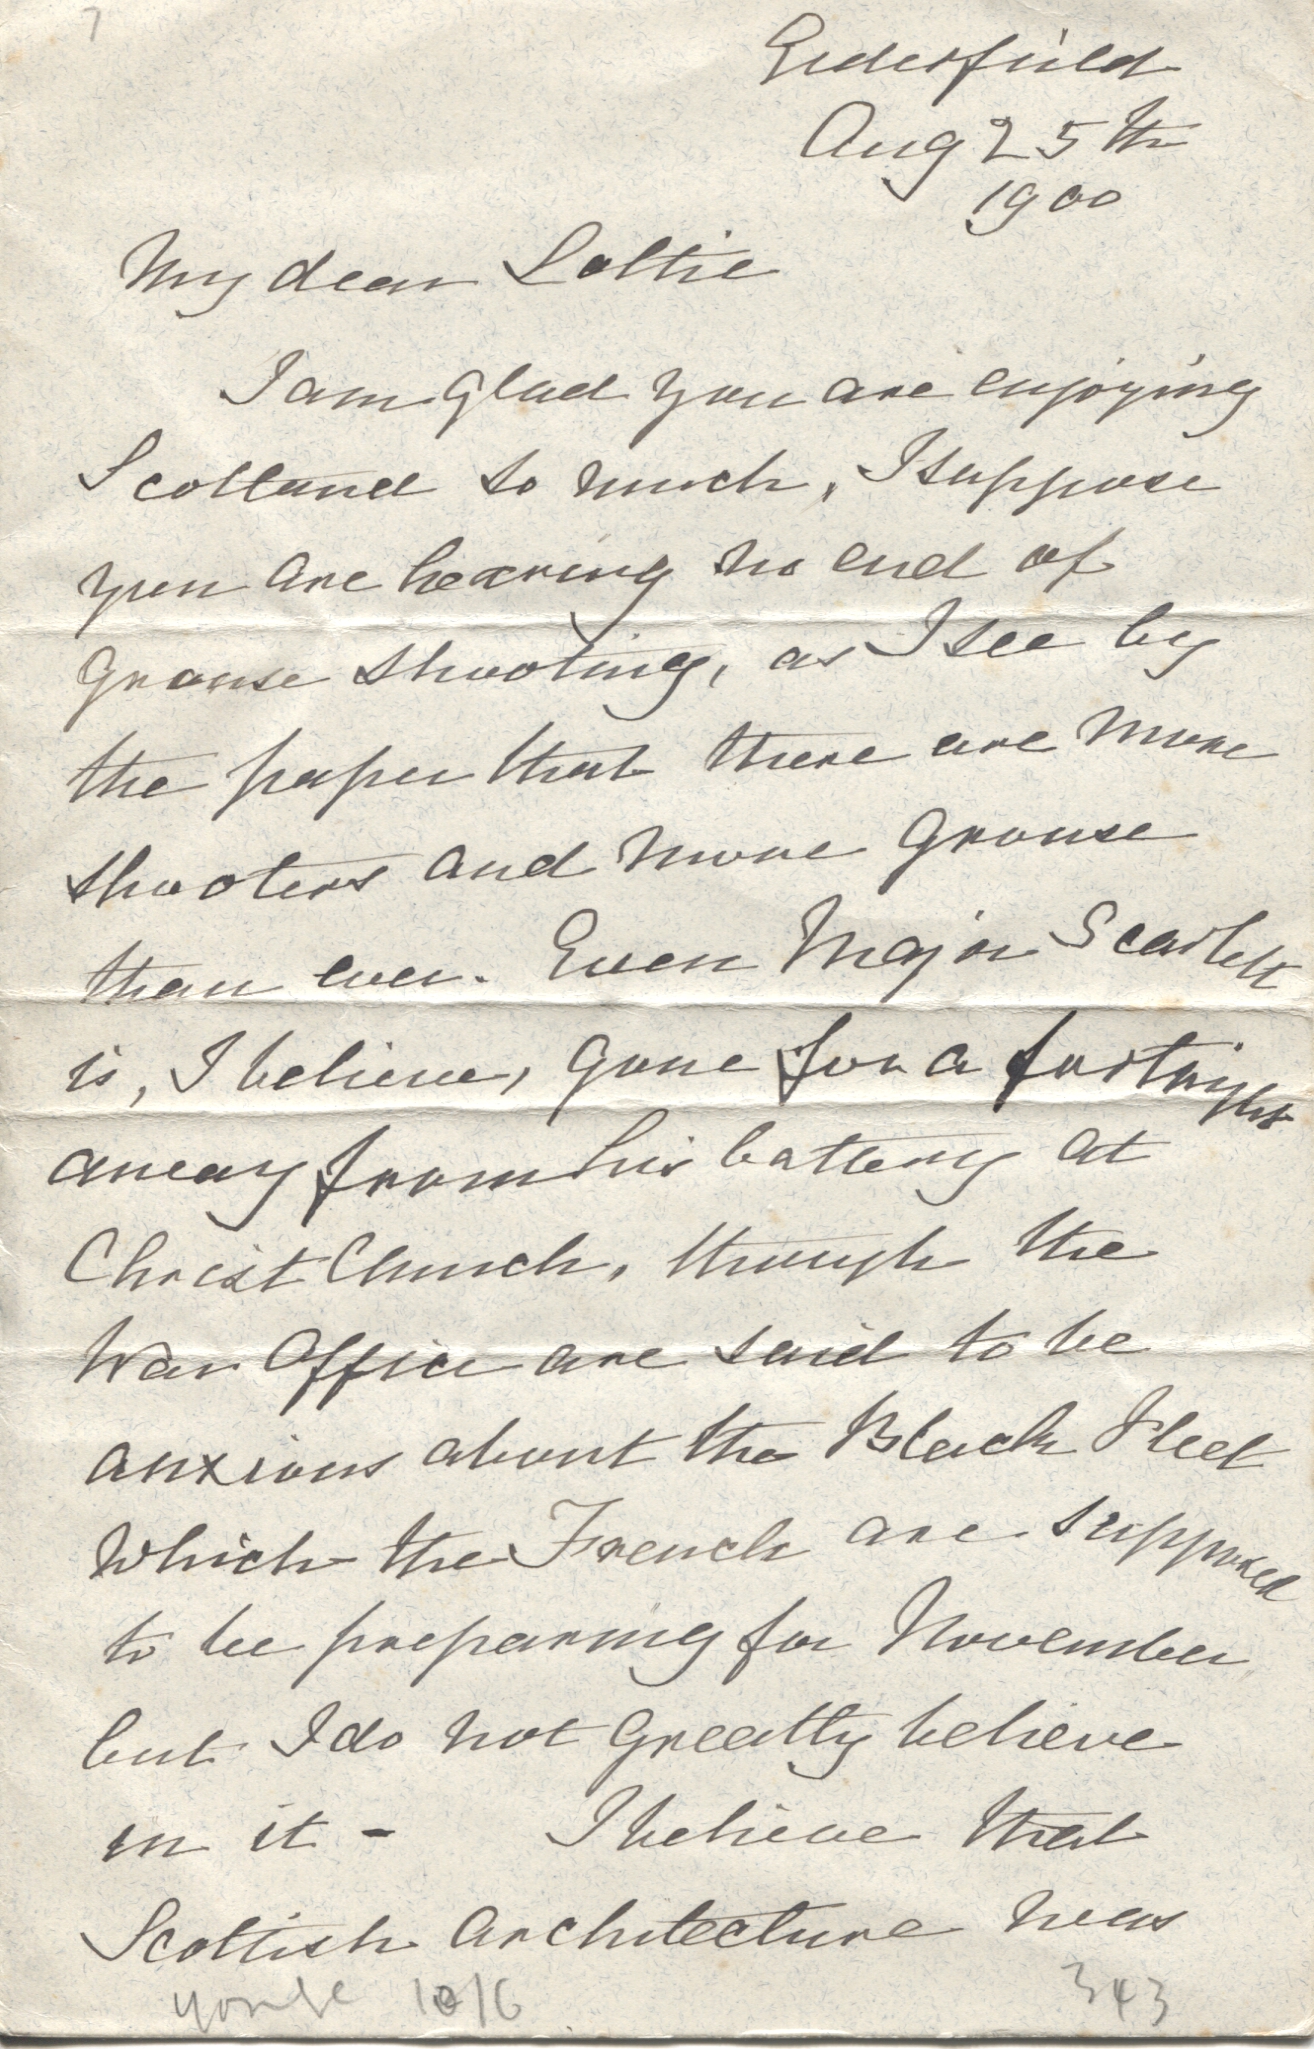 Elderfield
Aug 25th
1900
My dear Lottie
I am glad you are enjoying
Scotland so much, I suppose
you are hearing no end of
grouse shooting, as I see by
the paper that there are more
shooters and more grouse
than ever. Even Major Scarlett
is, I believe, gone for a fortnight
away from his battery at
Christ Church, though the
War Office are said to be
anxious about the Black Fleet
which the French are supposed
to be preparing for November
but I do not greatly believe
in it - I believe that
Scottish architecture was
Yonge 10/6 343
7